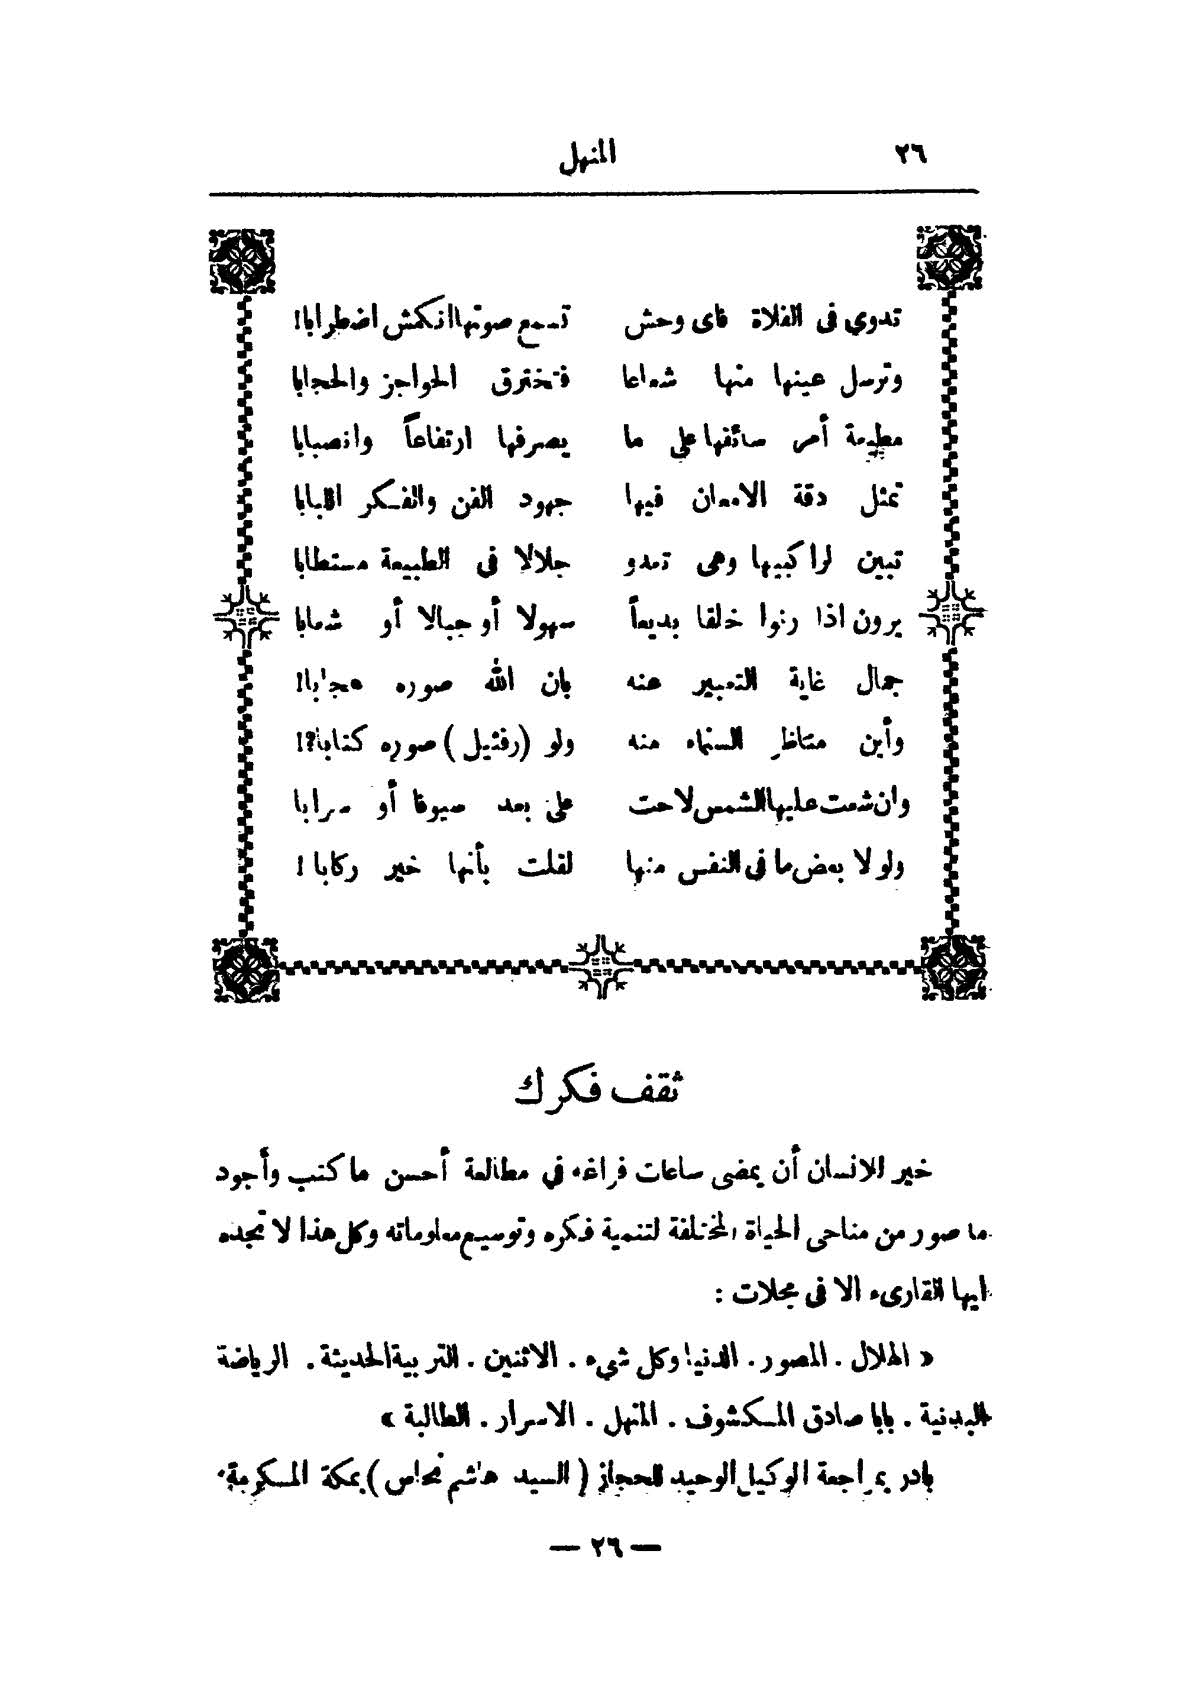 ٢٦ المنهل
تدوي فى الفلاة فاى وحش تسمع صوتها انكمش اضطرابا!
وترسل عينها منها شعاعا فتخترق الحواجز والحجابا
مطيعة أمر سائقها على ما يصرفها ارتفاعاً وانصبابا
تمثل دقة الامعان فيها جهود الفن والفكر اللبابا
تبين لراكبيها وهى تعدو جلالا فى الطبيعة مستطابا
يرون اذا رنوا خلقا بديعاً سهولا أو جبالا أو شعابا
جمال غاية التعبير عنه بان الله صوره عجابا!
وأين مناظر السنماء منه ولو (رفئيل) صوره كتابا؟!
وان شعت عليها الشمس لاحت على بعد ضيوفا أو سرابا
ولولا بعض ما فى النفس منها لقلت بأنها خير ركابا!
ثقف فكرك
خير للانسان أن يمضى ساعات فراغه في مطالعة أحسن ما كتب وأجود
ما صور من مناحى الحياة المختلفة لتنمية فكره وتوسيع معلوماته وكل هذا لا تجده
ايها القارىء الا فى مجلات :
« الهلال . المصور . الدنيا وكل شيء . الاثنين . التربية الحديثة . الرياضة
البدنية . بابا صادق المكشوف . المنهل . الاسرار . الطالبة »
بادر بمراجعة الوكيل الوحيد للحجاز ( السيد هاشم نحاس ) بمكة المكرمة.
— ٢٦ —